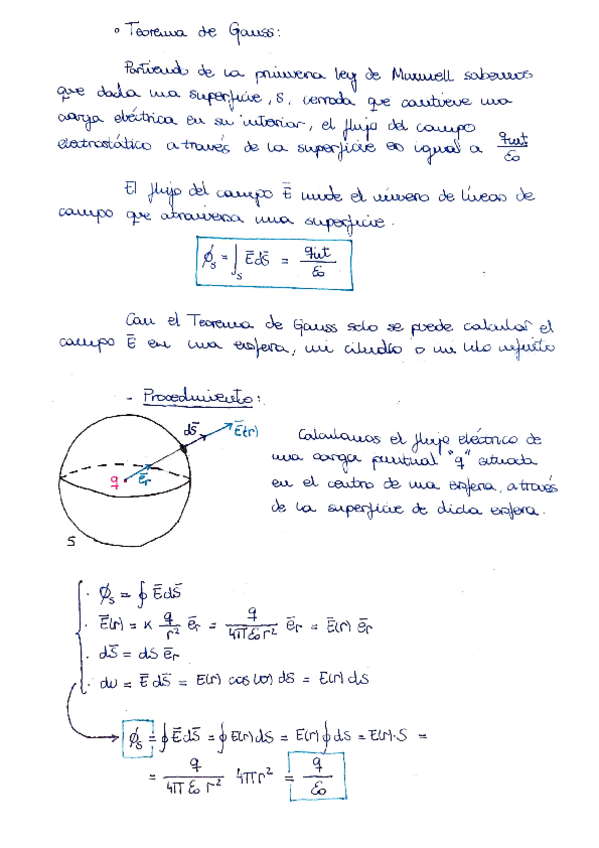 ° Teorema de Gauss:
Partiendo de la primera ley de Maxwell sabemos
que dada una superficie, S, cerrada que contiene una
carga eléctrica en su interior, el flujo del campo
eletrostático a través de la superficie es igual a qint/ε₀
El flujo del campo Ē mide el número de líneas de
campo que atraviesa una superficie.
ϕs = ∫s Ē ds̄ = qint/ε₀
Con el Teorema de Gauss solo se puede calcular el
campo Ē en una esfera, un cilindro o un hilo infinito
- Procedimiento:
ds̄ Ē(r)
q ēr
S
Calculamos el flujo eléctrico de
una carga puntual "q" situada
en el centro de una esfera, a través
de la superficie de dicha esfera.
· ϕs = ∮ Ē ds̄
· Ē(r) = K q/r² ēr = q/4πε₀r² ēr = Ē(r) ēr
· ds̄ = ds ēr
· dω = Ē ds̄ = E(r) cos(0) ds = E(r) ds
ϕs = ∮ Ē ds̄ = ∮ E(r) ds = E(r) ∮ ds = E(r)·S =
= q/4πε₀r² 4πr² = q/ε₀